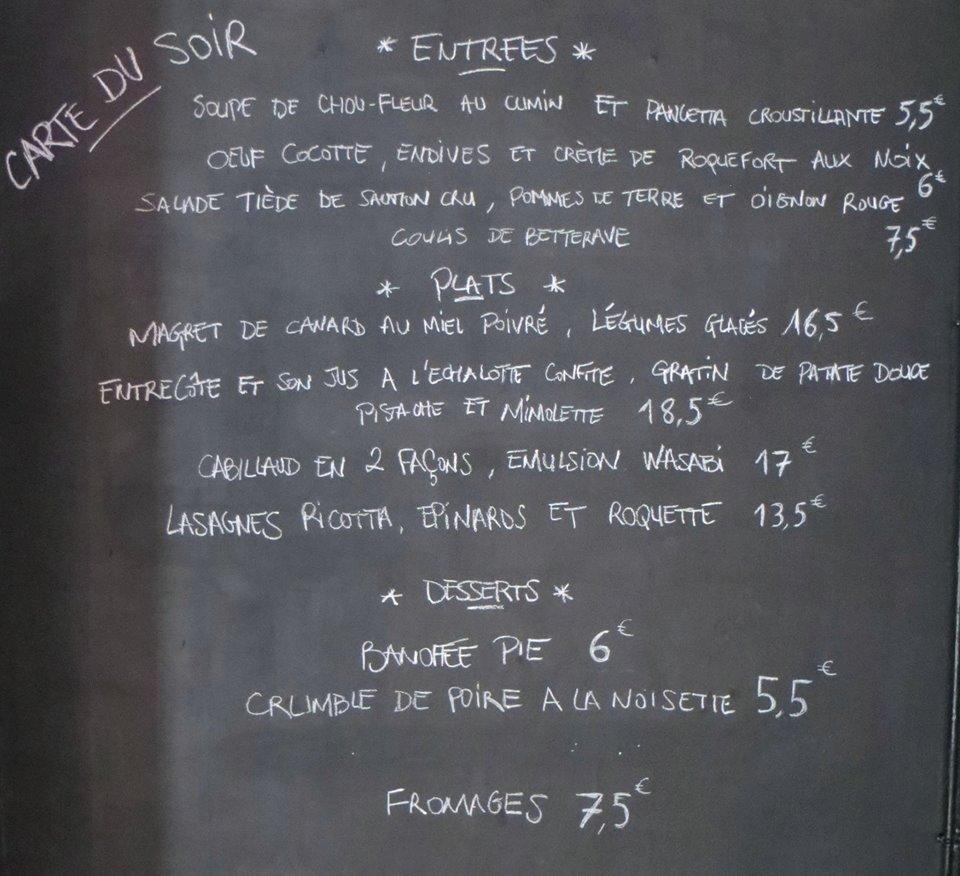 CARTE DU SOIR
* ENTREES *
SOUPE DE CHOU-FLEUR AU CUMIN ET PANCETTA CROUSTILLANTE 5,5€
OEUF COCOTTE, ENDIVES ET CRÈME DE ROQUEFORT AUX NOIX
6€
SALADE TIÈDE DE SAUMON CRU, POMMES DE TERRE ET OIGNON ROUGE
COULIS DE BETTERAVE 7,5€
* PLATS *
MAGRET DE CANARD AU MIEL POIVRÉ, LÉGUMES GLACÉS 16,5€
ENTRECÔTE ET SON JUS A L'ECHALOTTE CONFITE, GRATIN DE PATATE DOUCE
PISTACHE ET MIMOLETTE 18,5€
CABILLAUD EN 2 FAÇONS, EMULSION WASABI 17€
LASAGNES RICOTTA, EPINARDS ET ROQUETTE 13,5€
* DESSERTS *
BANOFEE PIE 6€
CRUMBLE DE POIRE A LA NOISETTE 5,5€
FROMAGES 7,5€